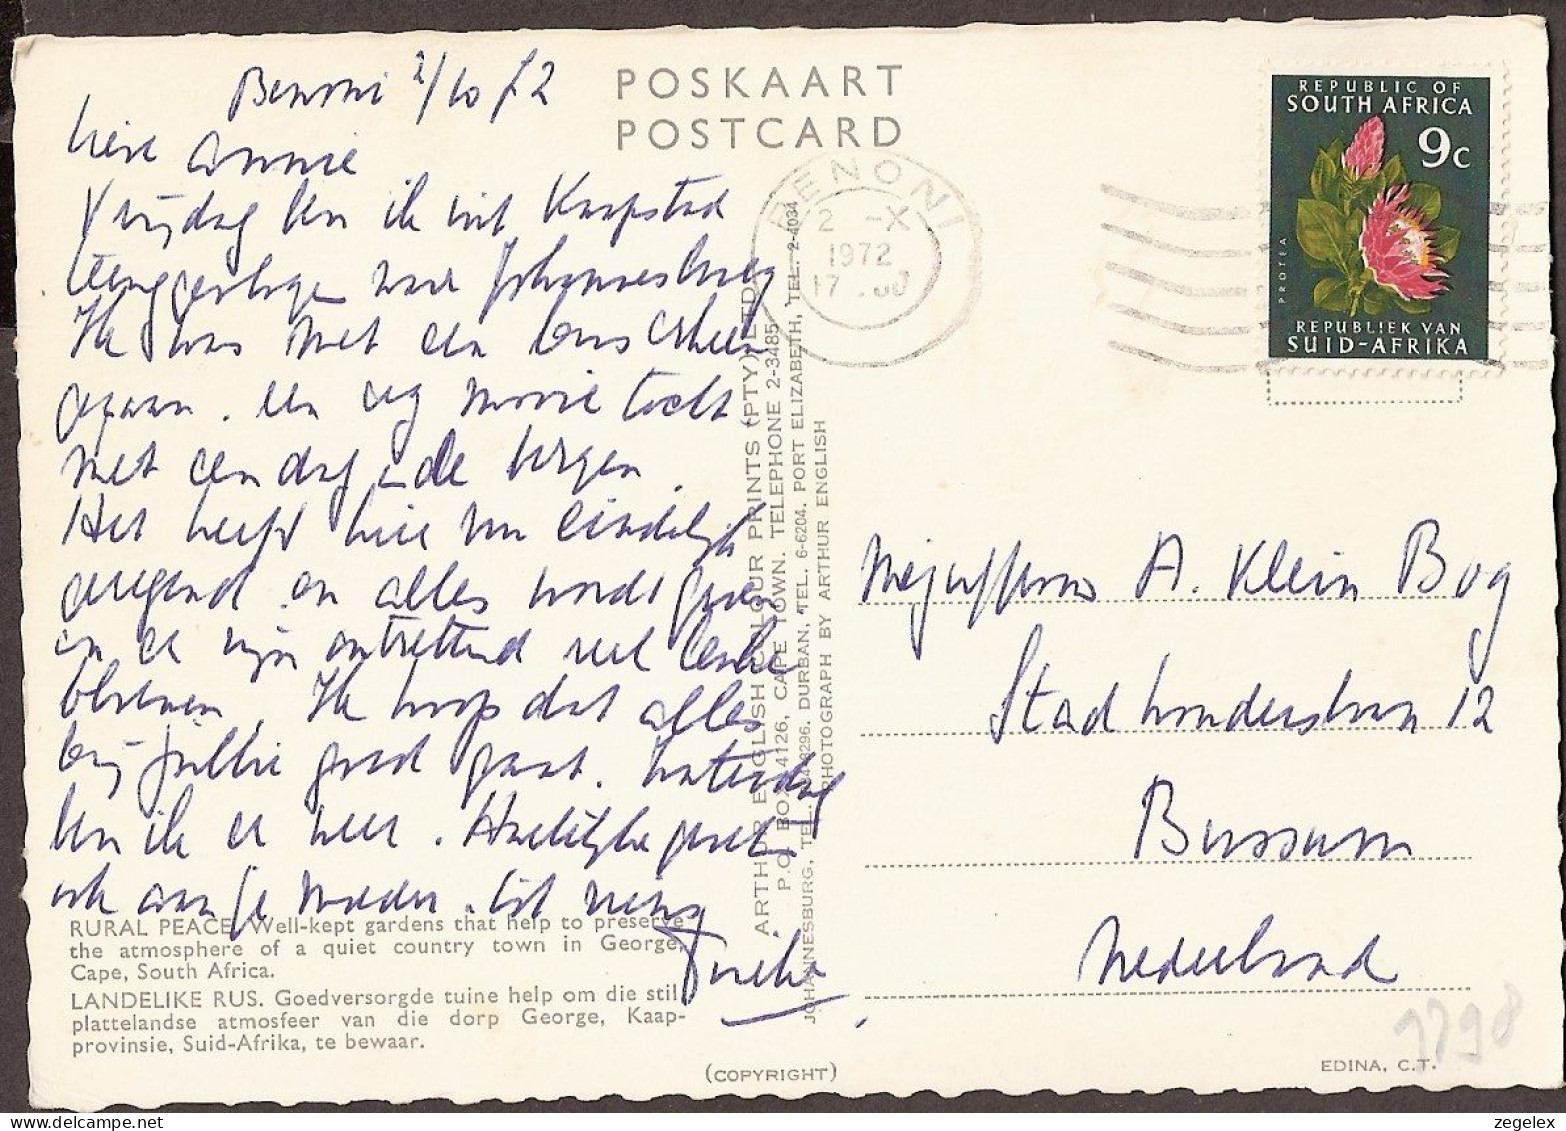 Benoni 2/10 72
POSKAART
POSTCARD
Lieve Annie
Vrijdag ben ik uit Kaapstad
teruggevlogen naar Johannesburg
Ik was met een bus erheen
gegaan. een erg mooie tocht
met een dag in de bergen.
Het heeft hier nu eindelijk
geregend en alles wordt groen
en er zijn ontzettend veel
bloemen. Ik hoop dat alles
bij jullie goed gaat. Zaterdag
ben ik er weer. Hartelijke groet
ook aan je moeder. tot ziens
RURAL PEACE. Well-kept gardens that help to preserve
the atmosphere of a quiet country town in George,
Cape, South Africa.
LANDELIKE RUS. Goedversorgde tuine help om die stil
plattelandse atmosfeer van die dorp George, Kaap-
provinsie, Suid-Afrika, te bewaar.
(COPYRIGHT)
ARTHUR ENGLISH COLOUR PRINTS (PTY) LTD.
P.O. BOX 4126, CAPE TOWN. TELEPHONE 2-3485
JOHANNESBURG, TEL. DURBAN, TEL. 6-6204. PORT ELIZABETH, TEL. 2-4034
PHOTOGRAPH BY ARTHUR ENGLISH
BENONI
2 -X
1972
17
REPUBLIC OF
SOUTH AFRICA
9c
PROTEA
REPUBLIEK VAN
SUID-AFRIKA
Mejuffrouw A. Klein Bog
Stadhouderslaan 12
Bussum
Nederland
EDINA, C.T.
zegelex